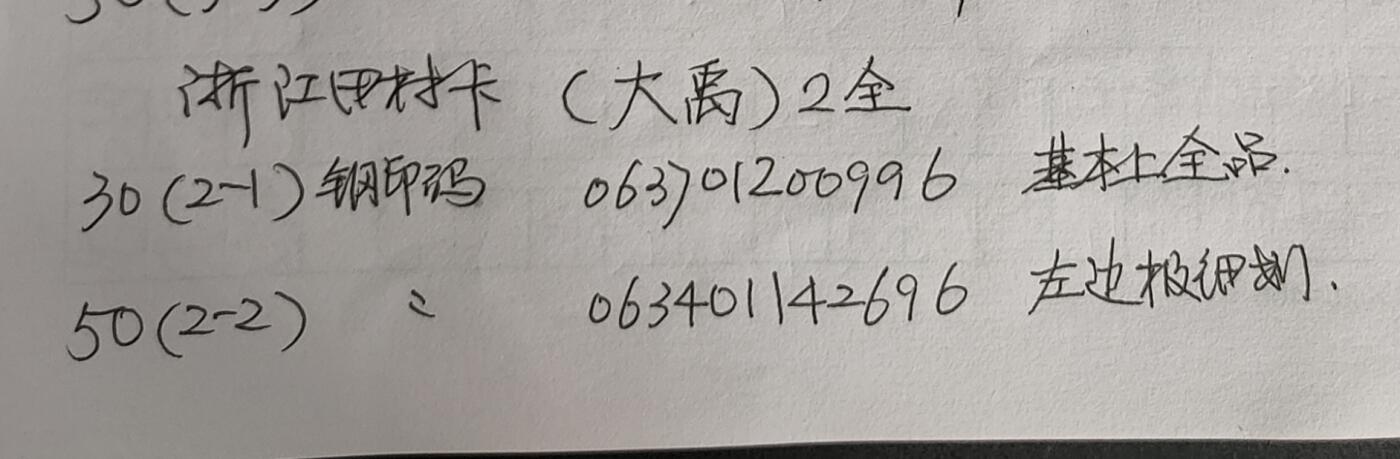 浙江田村卡（大禹）2全
30(2-1)钢印码 063701200996 基本上全品.
50(2-2) 〃 063401142696 左边极细划.